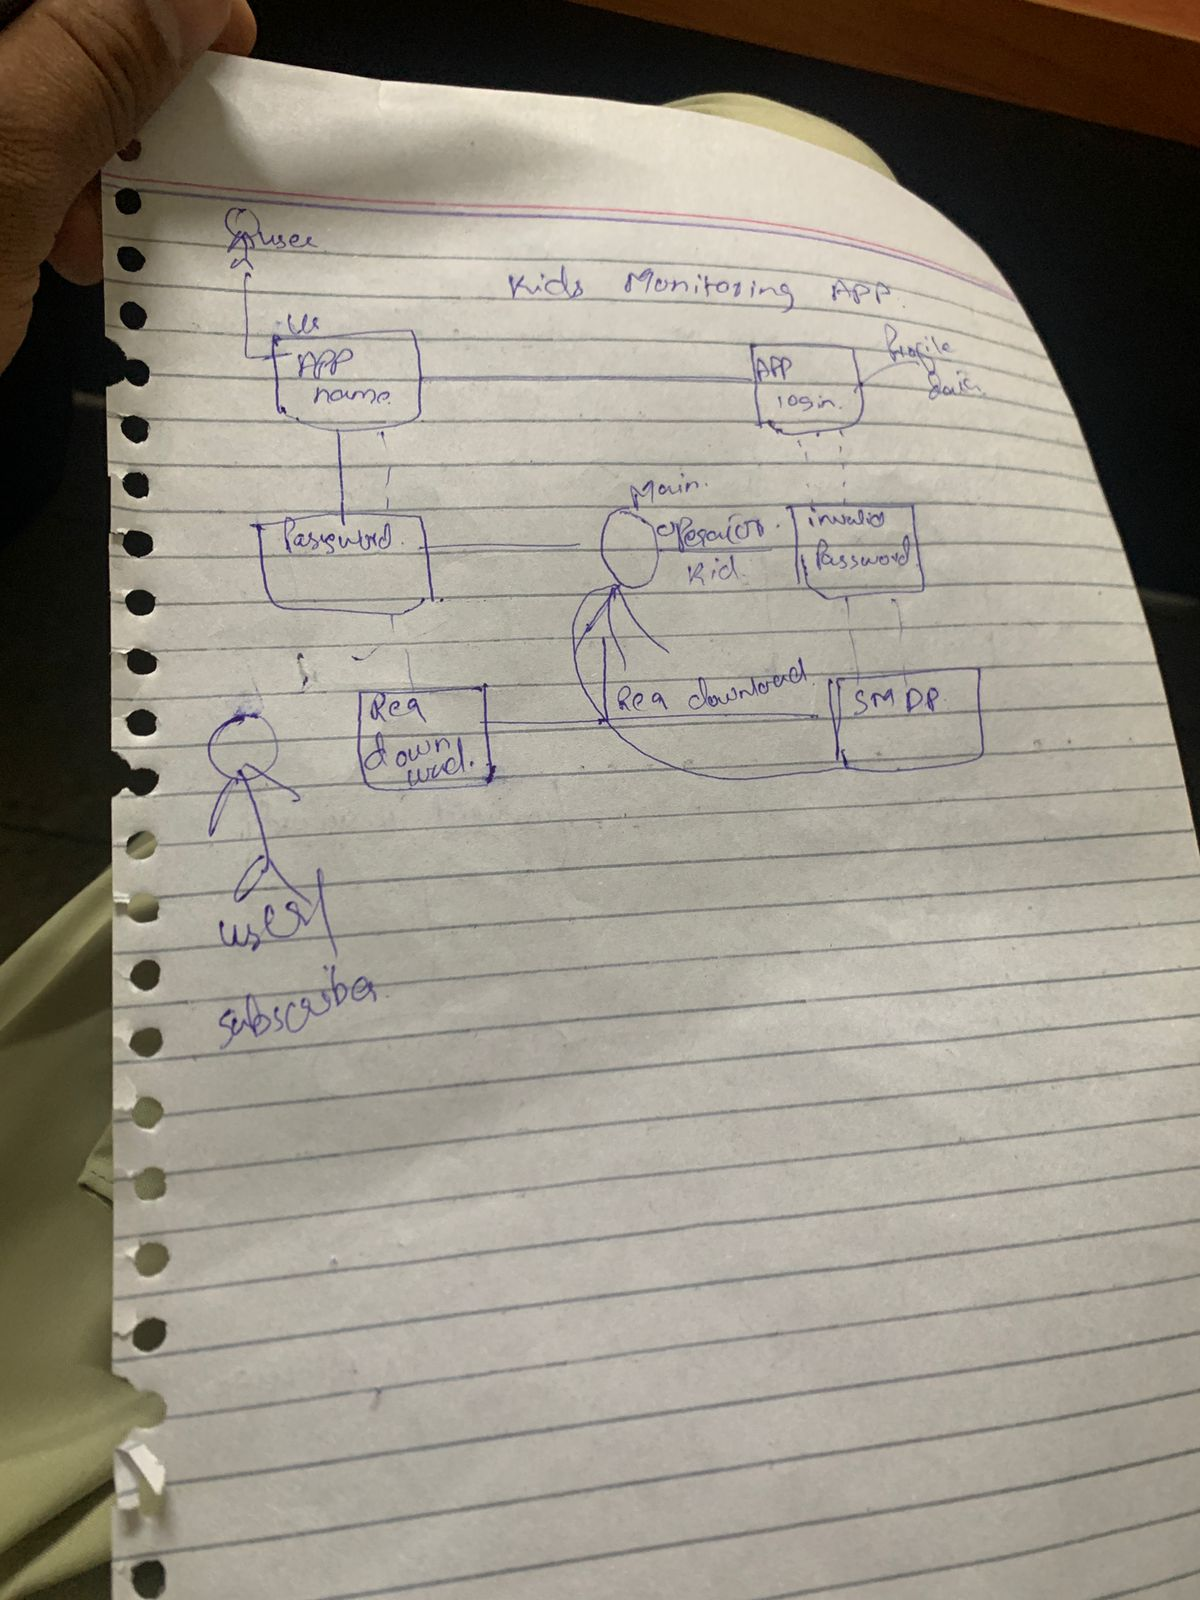 user
Kids Monitoring APP.
APP
name
APP
login.
Profile
Main.
operator.
Kid.
Password.
invalid
Password
Req
down
Req download
SMDP.
user/
subscriber